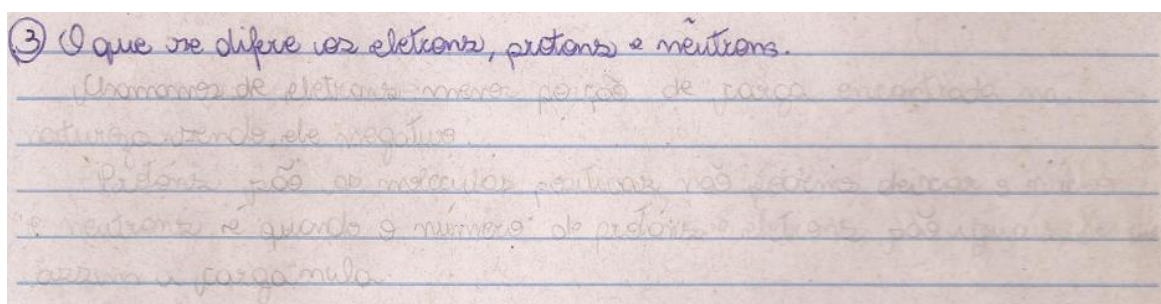 ③ O que se difere os eletrons, protons e nêutrons.
Chamamos de eletrons menor porção de carga encontrada na
natureza sendo ele negativo.
Protons são as moleculas positivas não
e neutrons é quando o número de protons e eletrons são
assim a carga nula.